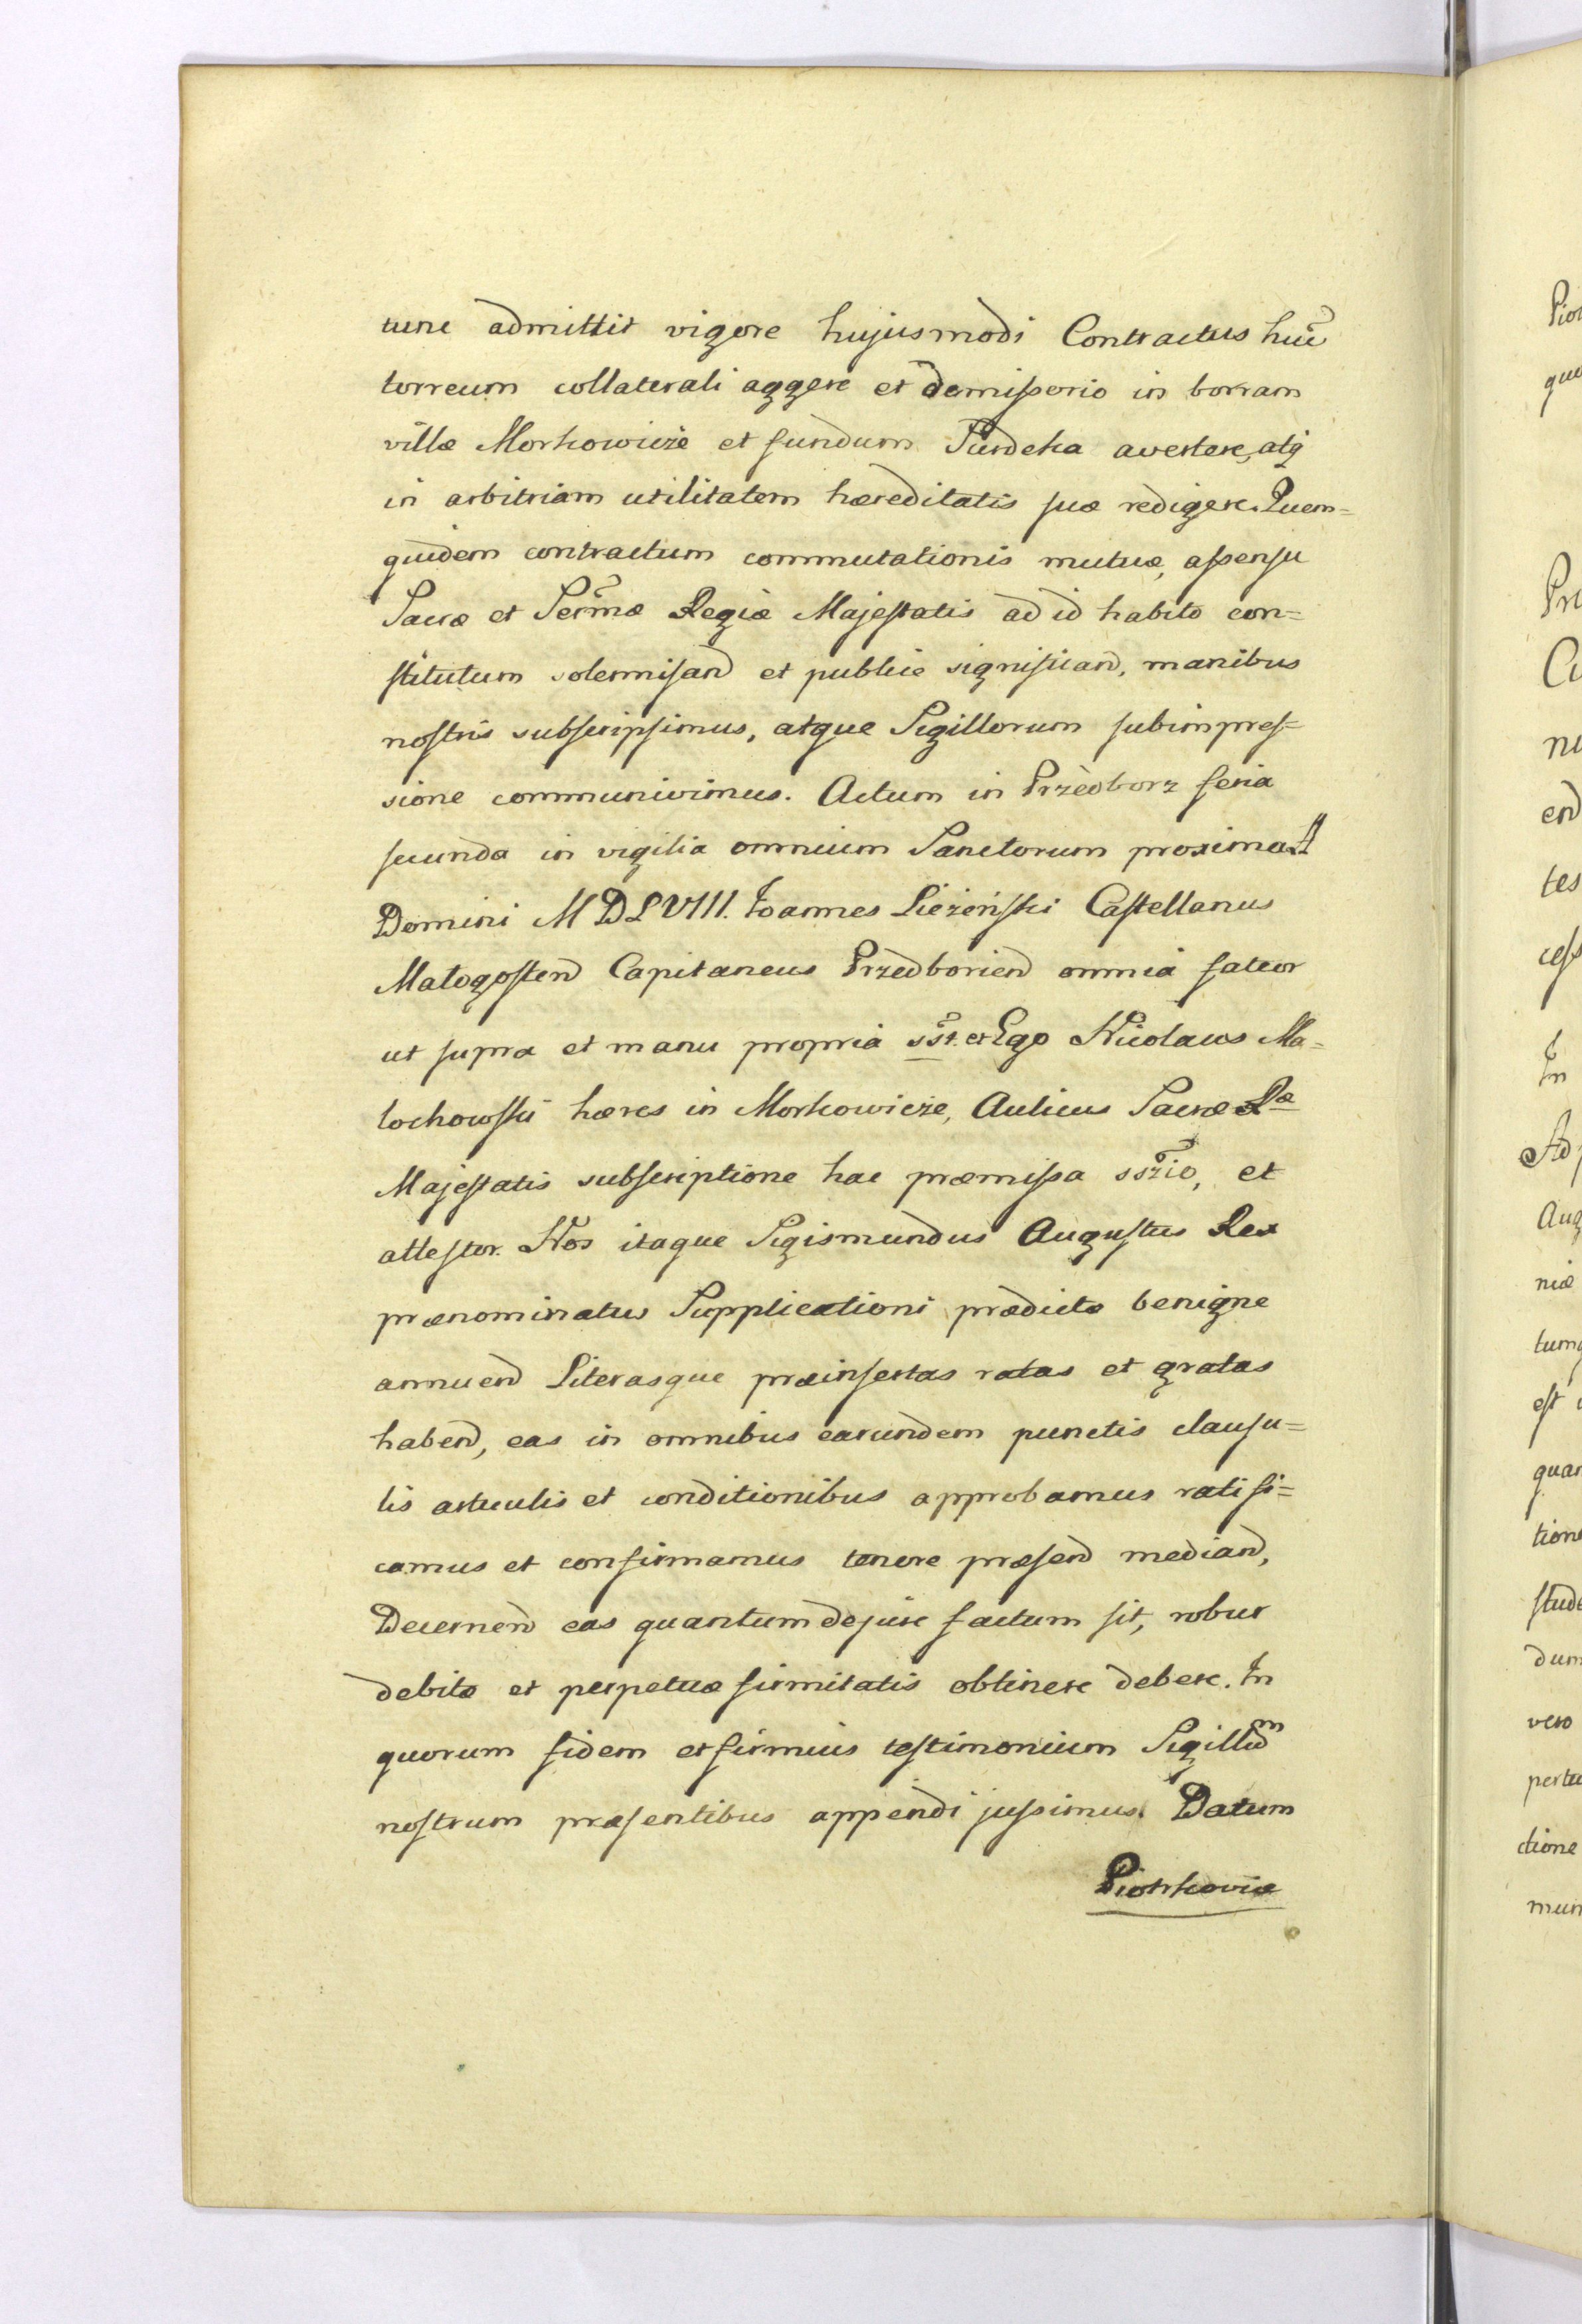 tunc admittit vigore hujusmodi Contractus hũc
torreum collaterali aggere et demisserio in borram
villæ Morkowicze et fundum Surdeka avertere, atq
in arbitriam utilitatem hæreditatis suæ redigere. Quem=
quidem contractum commutationis mutuæ, assensu
Sacræ et Sermæ Regiæ Majestatis ad id habito con=
stitutum solemnisand et publice significand, manibus
nostris subscripsimus, atque Sigillorum subimpres=
sione communivimus. Actum in Przedborz feria
secunda in vigilia omnium Sanctorum proxima A
Domini MDLVIII. Joannes Lieżeński Castellanus
Malogosten Capitaneus Przedborien omnia fateor
ut supra et manu propria sst. et Ego Nicolaus Ma=
lochowski hæres in Morkowicze, Aulicus Sacræ Ræ
Majestatis subscriptione hac præmissa sszio, et
attestor. Nos itaque Sigismundus Augustus Rex
prænominatus Supplicationi prædictæ benigne
annuend Literasque præinsertas ratas et gratas
habend, eas in omnibus earundem punctis clausu=
lis articulis et conditionibus approbamus ratifi=
camus et confirmamus tenore præsend mediand,
Decernend eas quantum de jure factum sit, robur
debitæ et perpetuæ firmitatis obtinere debere. In
quorum fidem et firmius testimonium Sigillum
nostrum præsentibus appendi jussimus. Datum
Piotrkoviæ